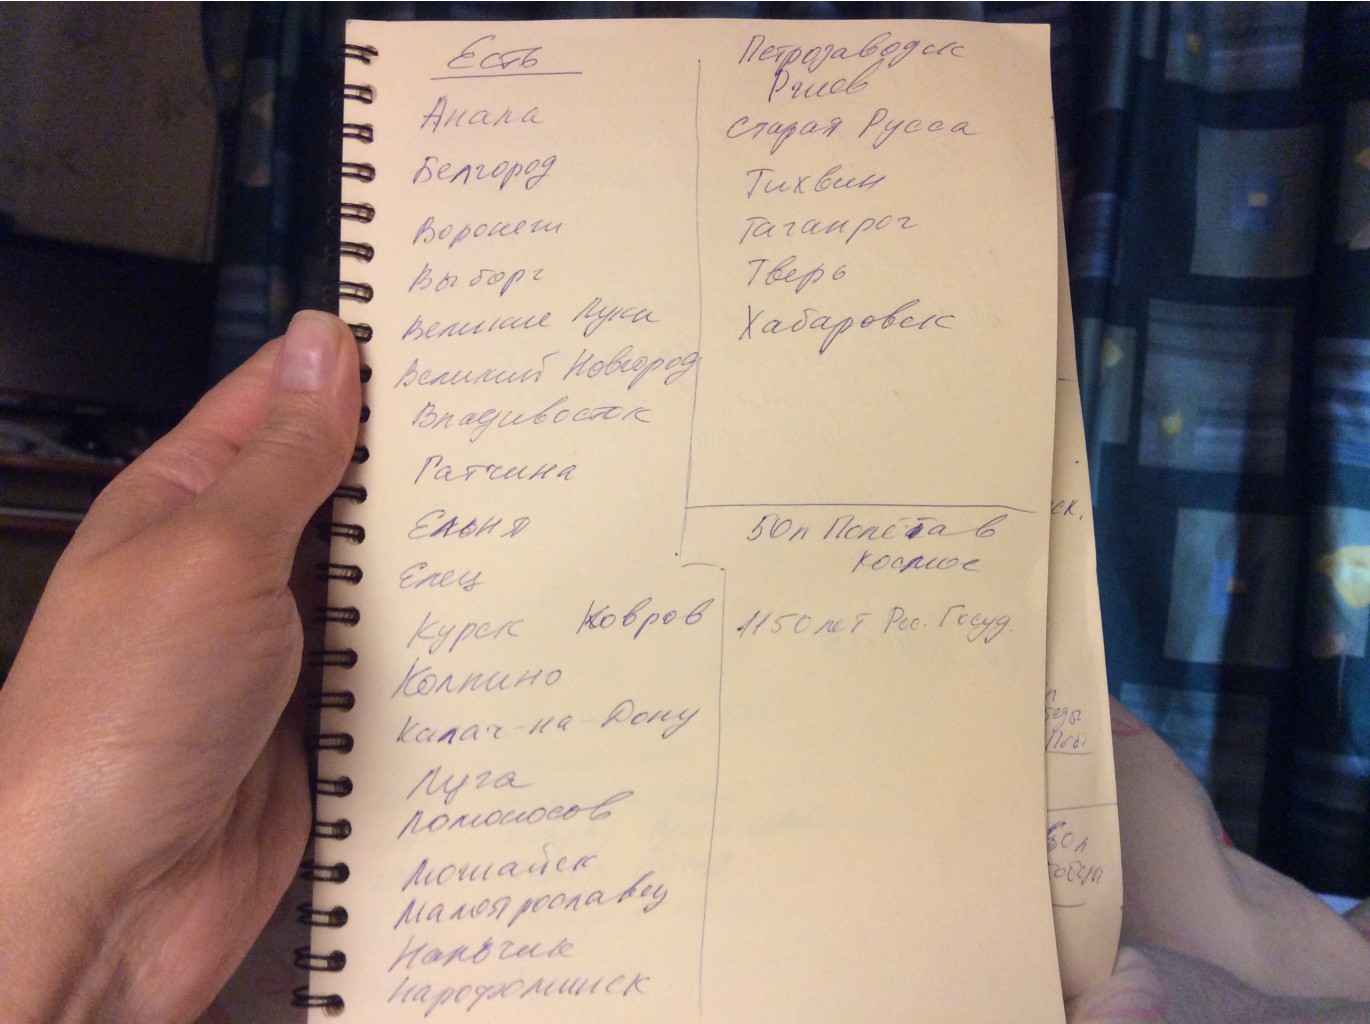 Есть
Анапа
Белгород
Воронеж
Выборг
Великие Луки
Великий Новгород
Владивосток
Гатчина
Ельня
Елец
Курск Ковров
Колпино
Калач-на-Дону
Луга
Ломоносов
Можайск
Малоярославец
Нальчик
Нарофоминск
Петрозаводск
Ржев
Старая Русса
Тихвин
Таганрог
Тверь
Хабаровск
50л Полёта в
космос
1150 лет Рос. Госуд.
ск.